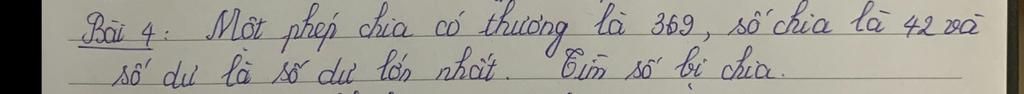 Bài 4: Một phép chia có thương là 369, số chia là 42 và
số dư là số dư lớn nhất. Tìm số bị chia.